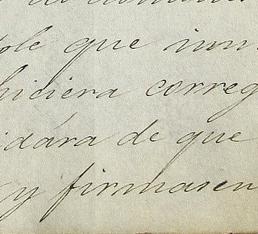 que inm
hiciera correg
idára de que
y firmasen